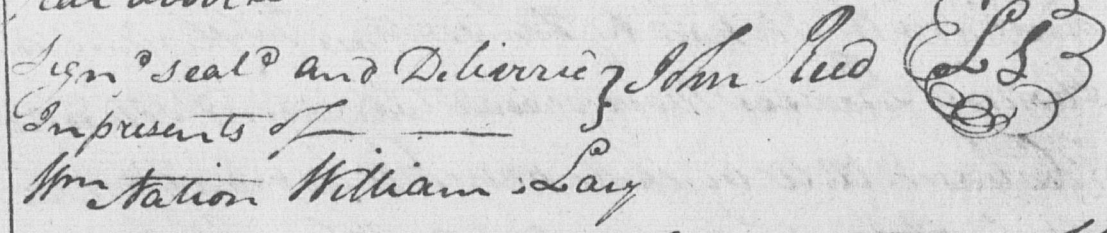 Sign'd seal'd and Deliverrie } John Reed LS
In presents of
Wm Nation William Lacy